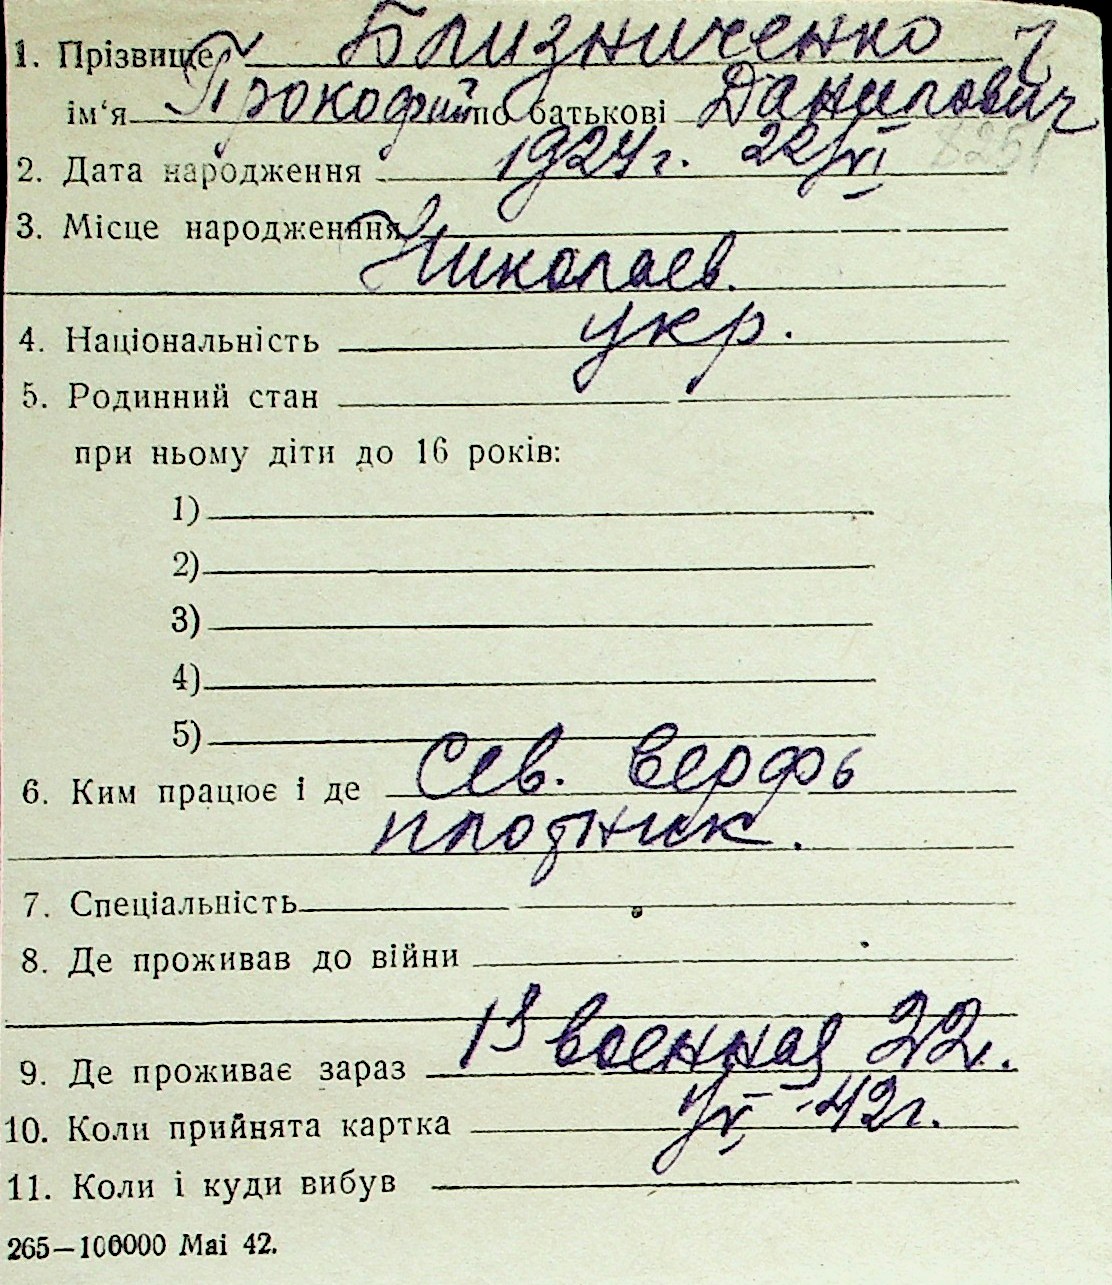 1. Прізвище Близниченко
ім‘я Прокофий по батькові Данилович
2. Дата народження 1924 г. 22/VI 8251
3. Місце народження
Николаев.
4. Національність укр.
5. Родинний стан
при ньому діти до 16 років:
1)
2)
3)
4)
5)
6. Ким працює і де Сев. верфь
плотник.
7. Спеціальність
8. Де проживав до війни
9. Де проживає зараз 13 военная 22.
10. Коли прийнята картка 42 г.
11. Коли і куди вибув
265—100000 Mai 42.